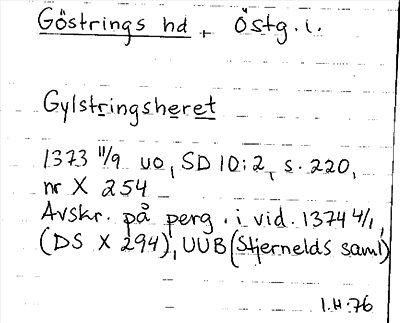 Göstrings hd, Östg. i.
Gylstringsheret
1373 11/9 uo, SD 10:2, s. 220,
nr X 254
Avskr. på perg. i vid. 1374 4/1,
(DS X 294), UUB (Stjernelds saml)
I.H. 76